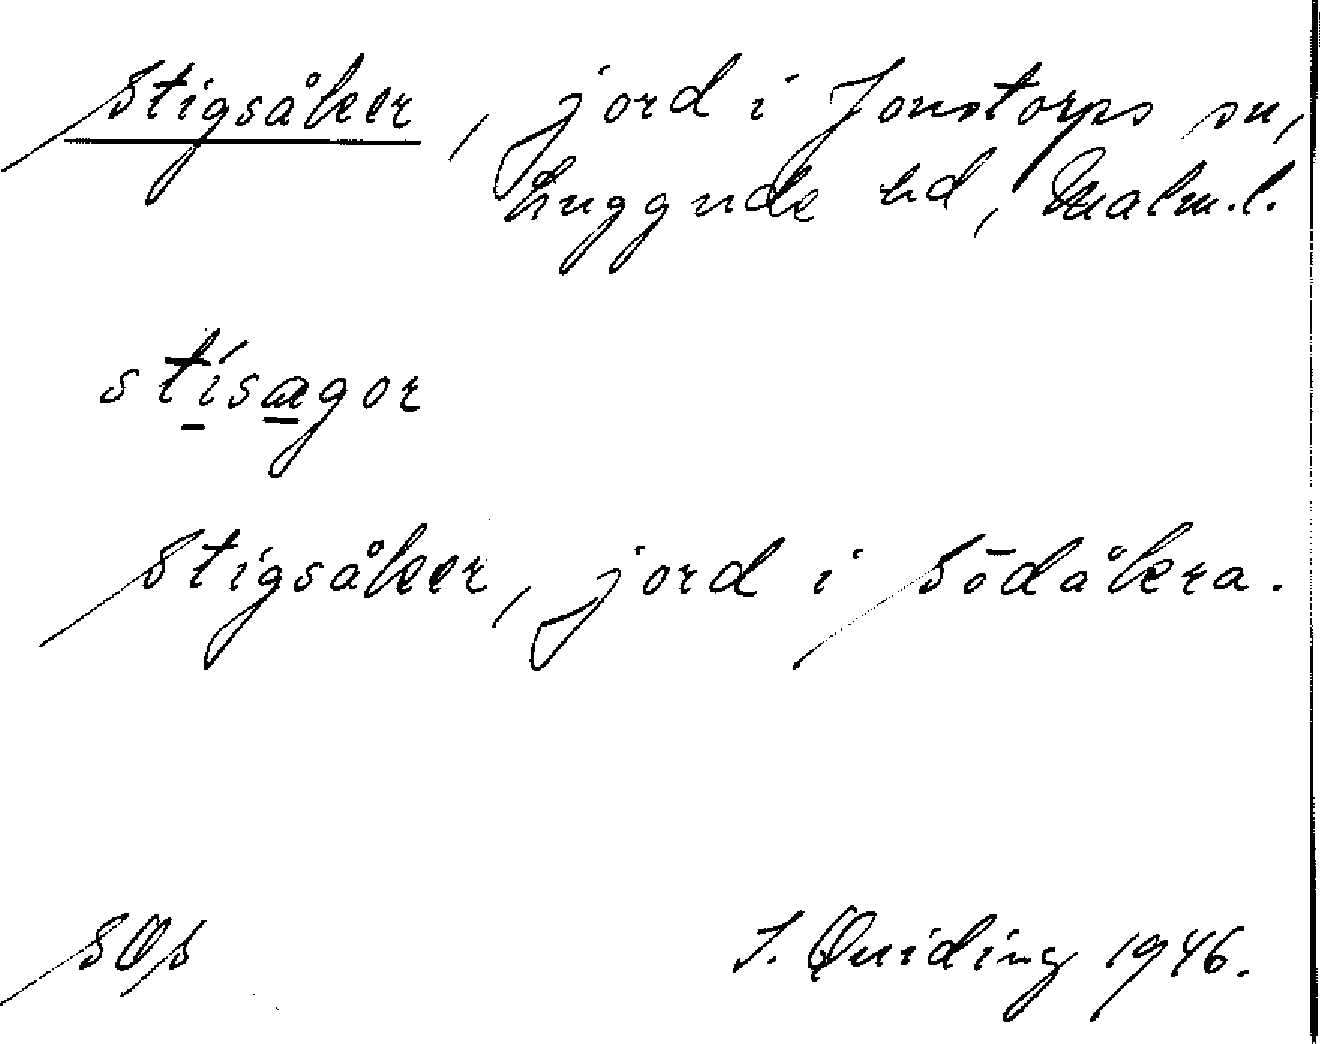 Stigsåker, jord i Jonstorps sn,
Luggude hd, Malm.l.
stísægor
Stigsåker, jord i Södåkra.
SOS
I. Quiding 1946.